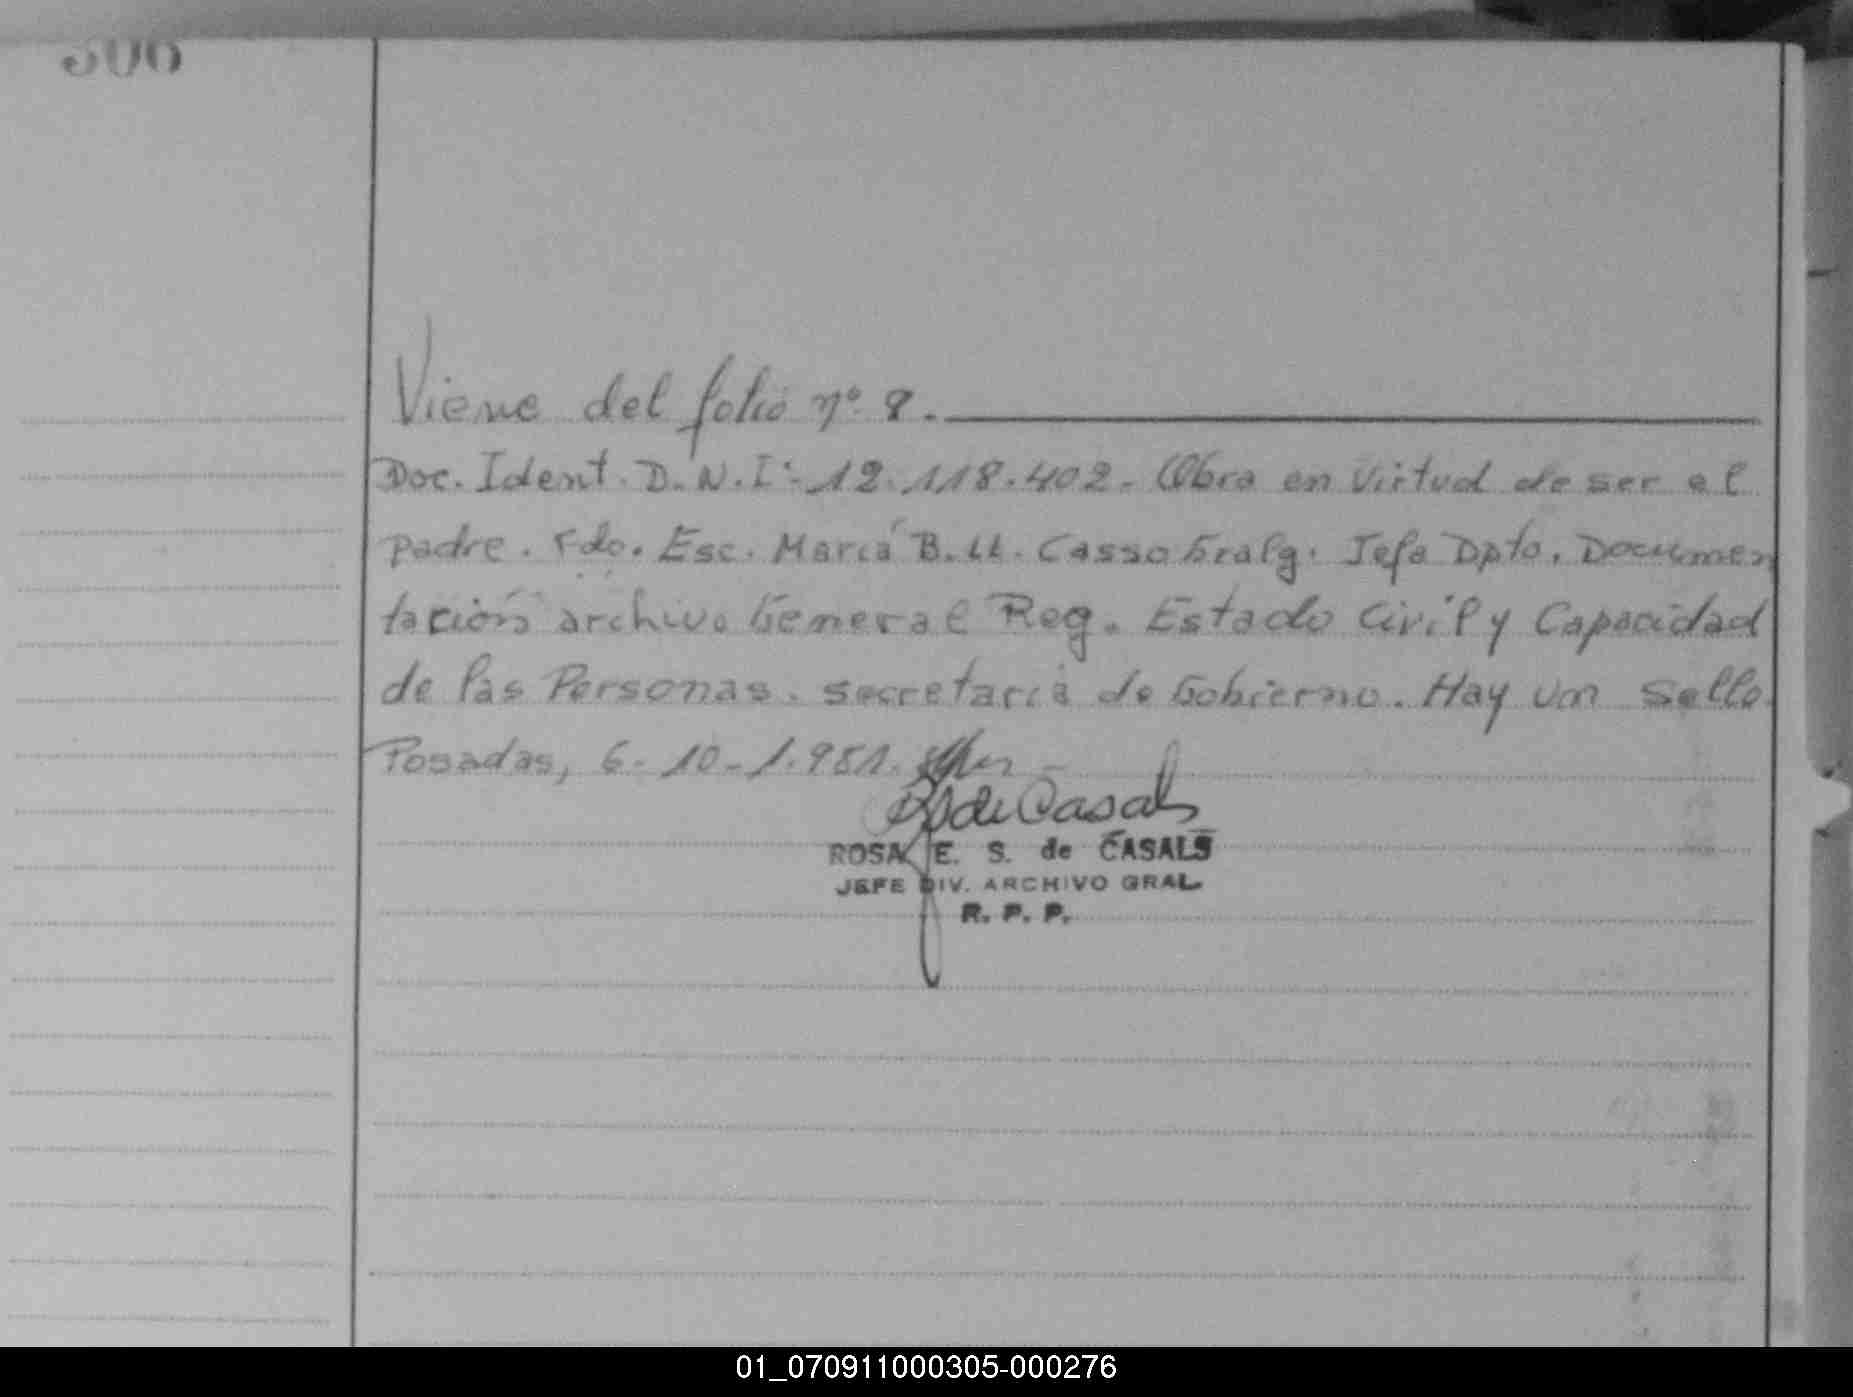 506
Viene del folio nº 8.
Doc. Ident. D.N.I:- 12.118.402. Obra en Virtud de ser el
padre. Fdo. Esc. María B. Ll. Casso Gralg. Jefa Dpto. Documen
tación archivo General Reg. Estado Civil y Capacidad
de las Personas. secretaría de Gobierno. Hay un sello.
Posadas, 6-10-1.981.
de Casals
ROSA E. S. de CASALS
JEFE DIV. ARCHIVO GRAL.
R. P. P.
01_070911000305-000276